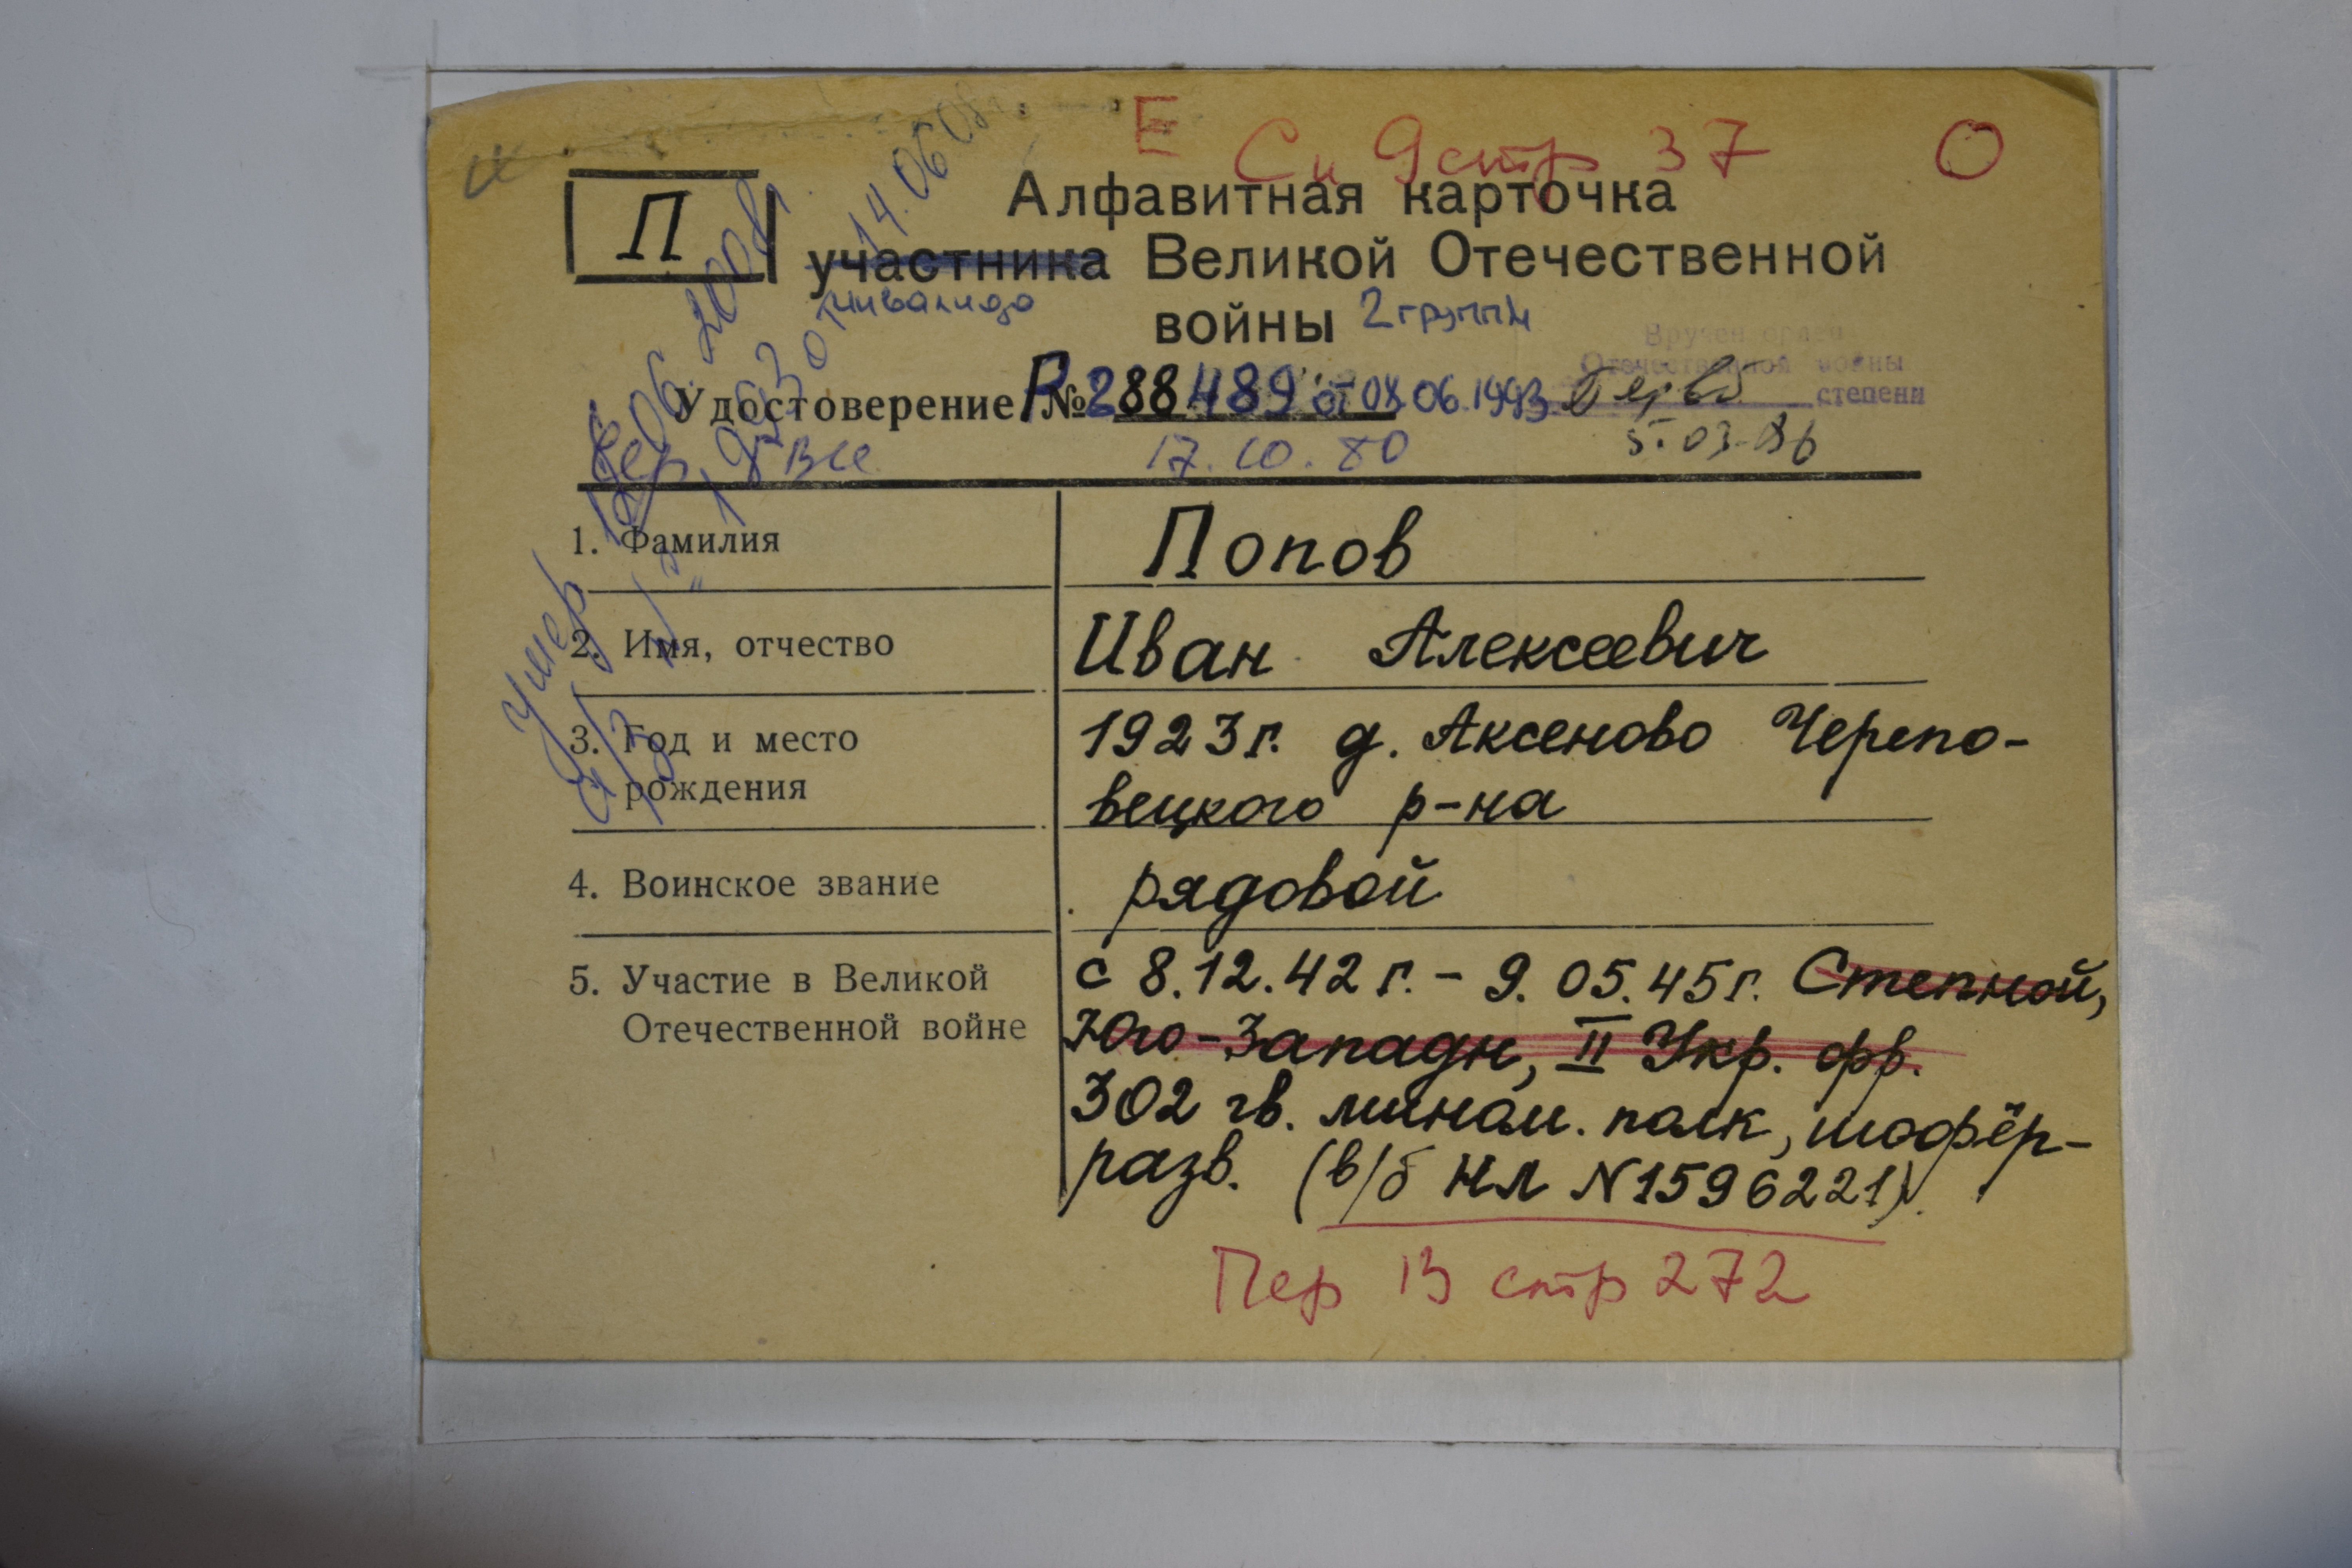 Е Сн 9 стр 37 О
П
Алфавитная карточка
участника Великой Отечественной
инвалида
войны 2 группы
Вручен орден
Отечественной войны
степени
Удостоверение Р №288489 от 08.06.1993
17.10.80 5.03.86
Умер
14.06.08
1. Фамилия Попов
2. Имя, отчество Иван Алексеевич
3. Год и место 1923 г. д. Аксеново Черепо-
рождения вецкого р-на
4. Воинское звание рядовой
5. Участие в Великой с 8.12.42 г. - 9.05.45 г. Степной,
Отечественной войне Юго-Западн, II Укр. фр.
302 гв. мином. полк, шофёр-
разв. (в/б НЛ N1596221)
Пер 13 стр 272